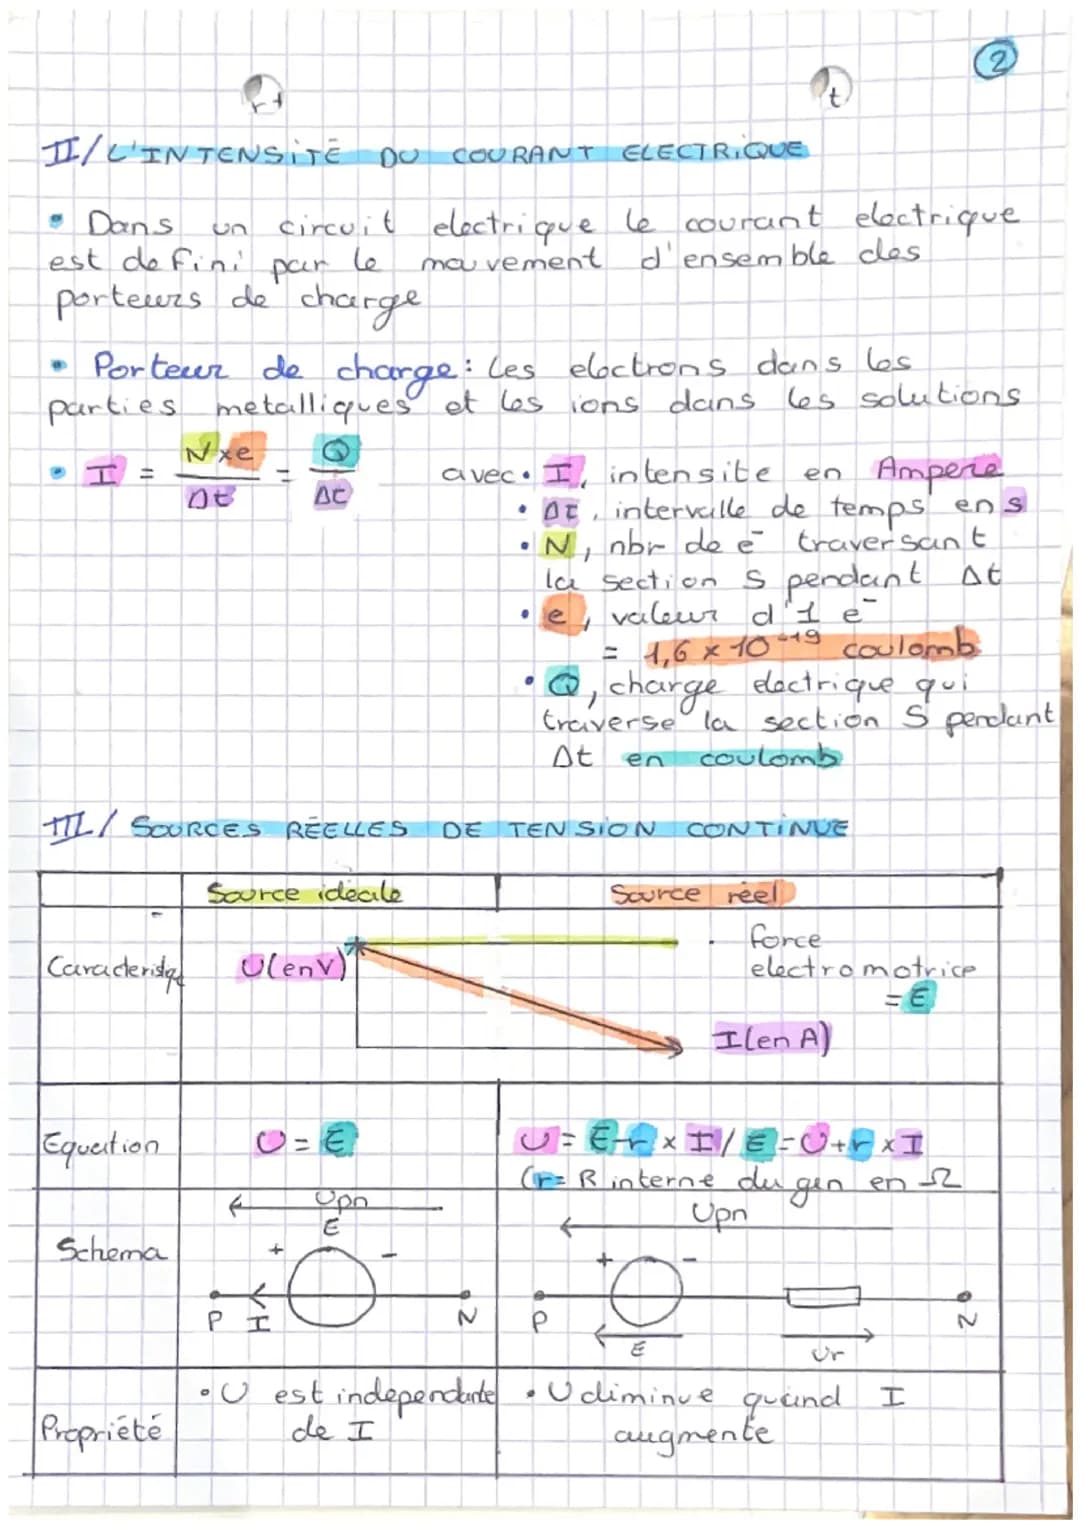 2
r+
t
II/ L'INTENSITÉ DU COURANT ELECTRIQUE
• Dans un circuit electrique le courant electrique
est defini par le mouvement d'ensemble des
porteurs de charge
• Porteur de charge : les electrons dans les
parties metalliques et les ions dans les solutions
• I = N×e / Δt = Q / Δt
avec • I, intensite en Ampere
• Δt, intervalle de temps en s
• N, nbr de e⁻ traversant
la section S pendant Δt
• e, valeur d'1 e⁻
= 1,6 × 10⁻¹⁹ coulomb
• Q, charge electrique qui
traverse la section S pendant
Δt en coulomb
III/ SOURCES RÉELLES DE TENSION CONTINUE
Source ideale Source réel
Caracteristq U(en V) force
electromotrice
= E
I(en A)
Equation U = E U = E-r × I / E = U+r × I
(r = R interne du gen en Ω
Schema Upn Upn
E
+ - + -
P I N P N
E Ur
Propriété • U est independante • U diminue quand I
de I augmente